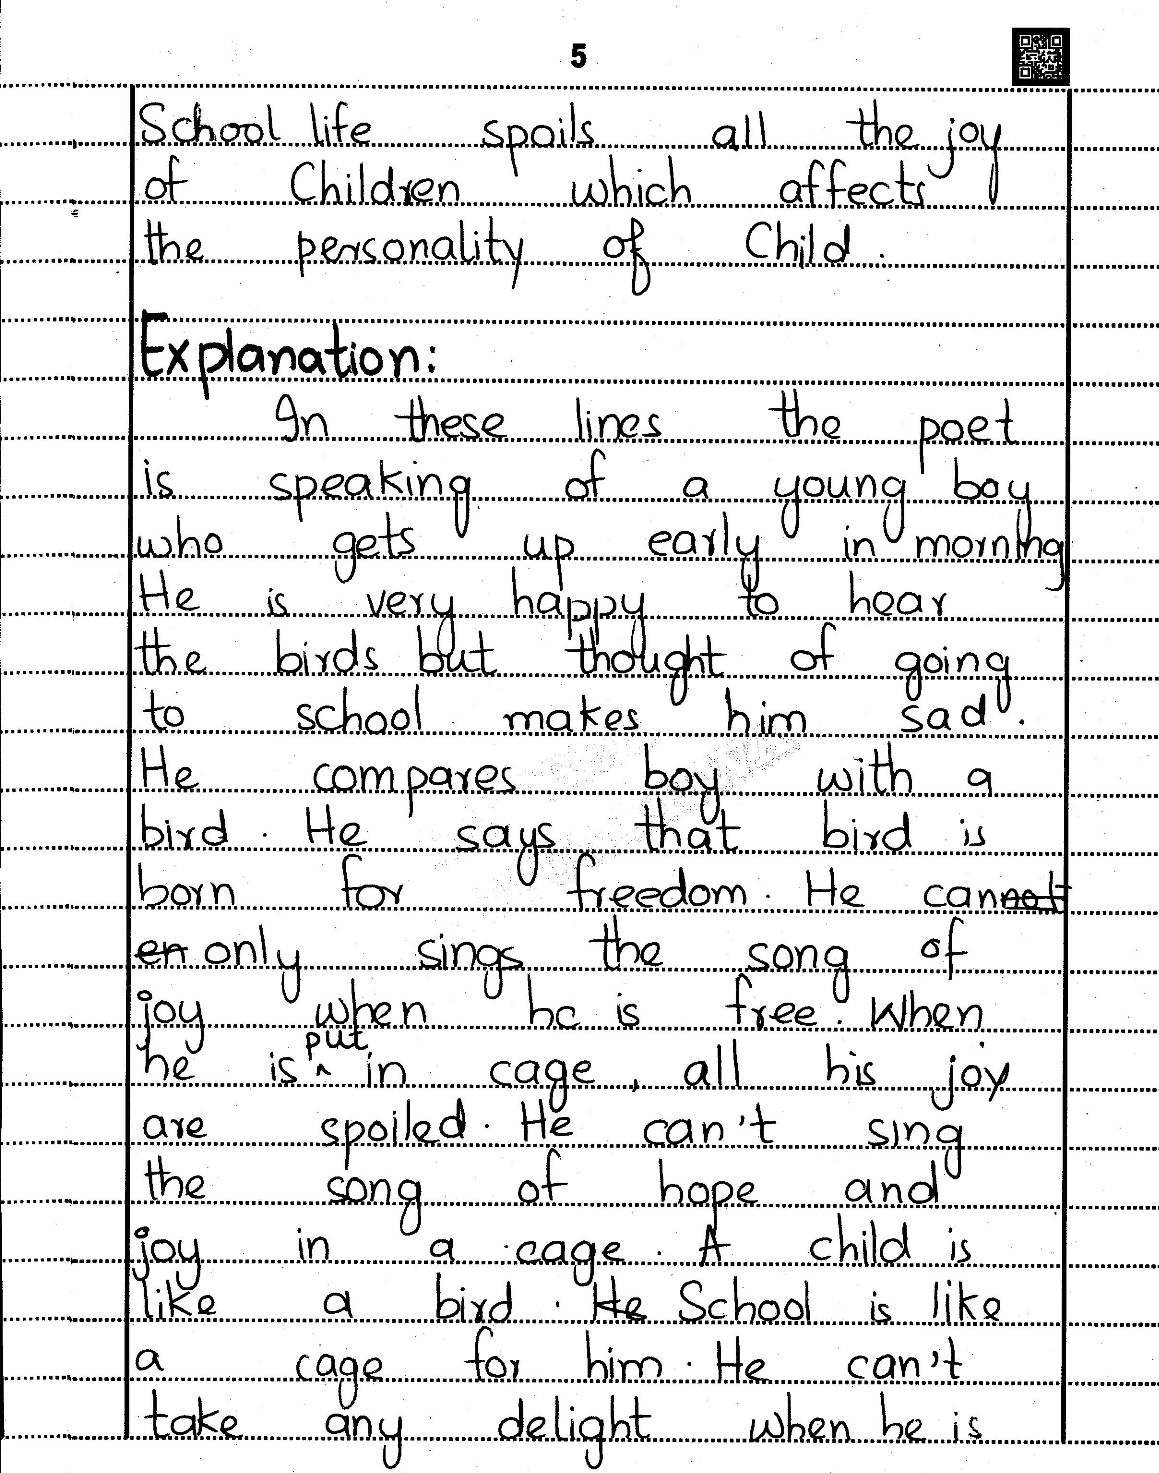 5
School life spoils all the joy
of Children which affects
the personality of Child.
Explanation:
In these lines the poet
is speaking of a young boy
who gets up early in morning
He is very happy to hear
the birds but thought of going
to school makes him sad.
He compares boy with a
bird. He says that bird is
born for freedom. He cannot
en only sings the song of
joy when he is free. When
he is put in cage, all his joy
are spoiled. He can't sing
the song of hope and
joy in a cage. A child is
like a bird. He School is like
a cage for him. He can't
take any delight when he is